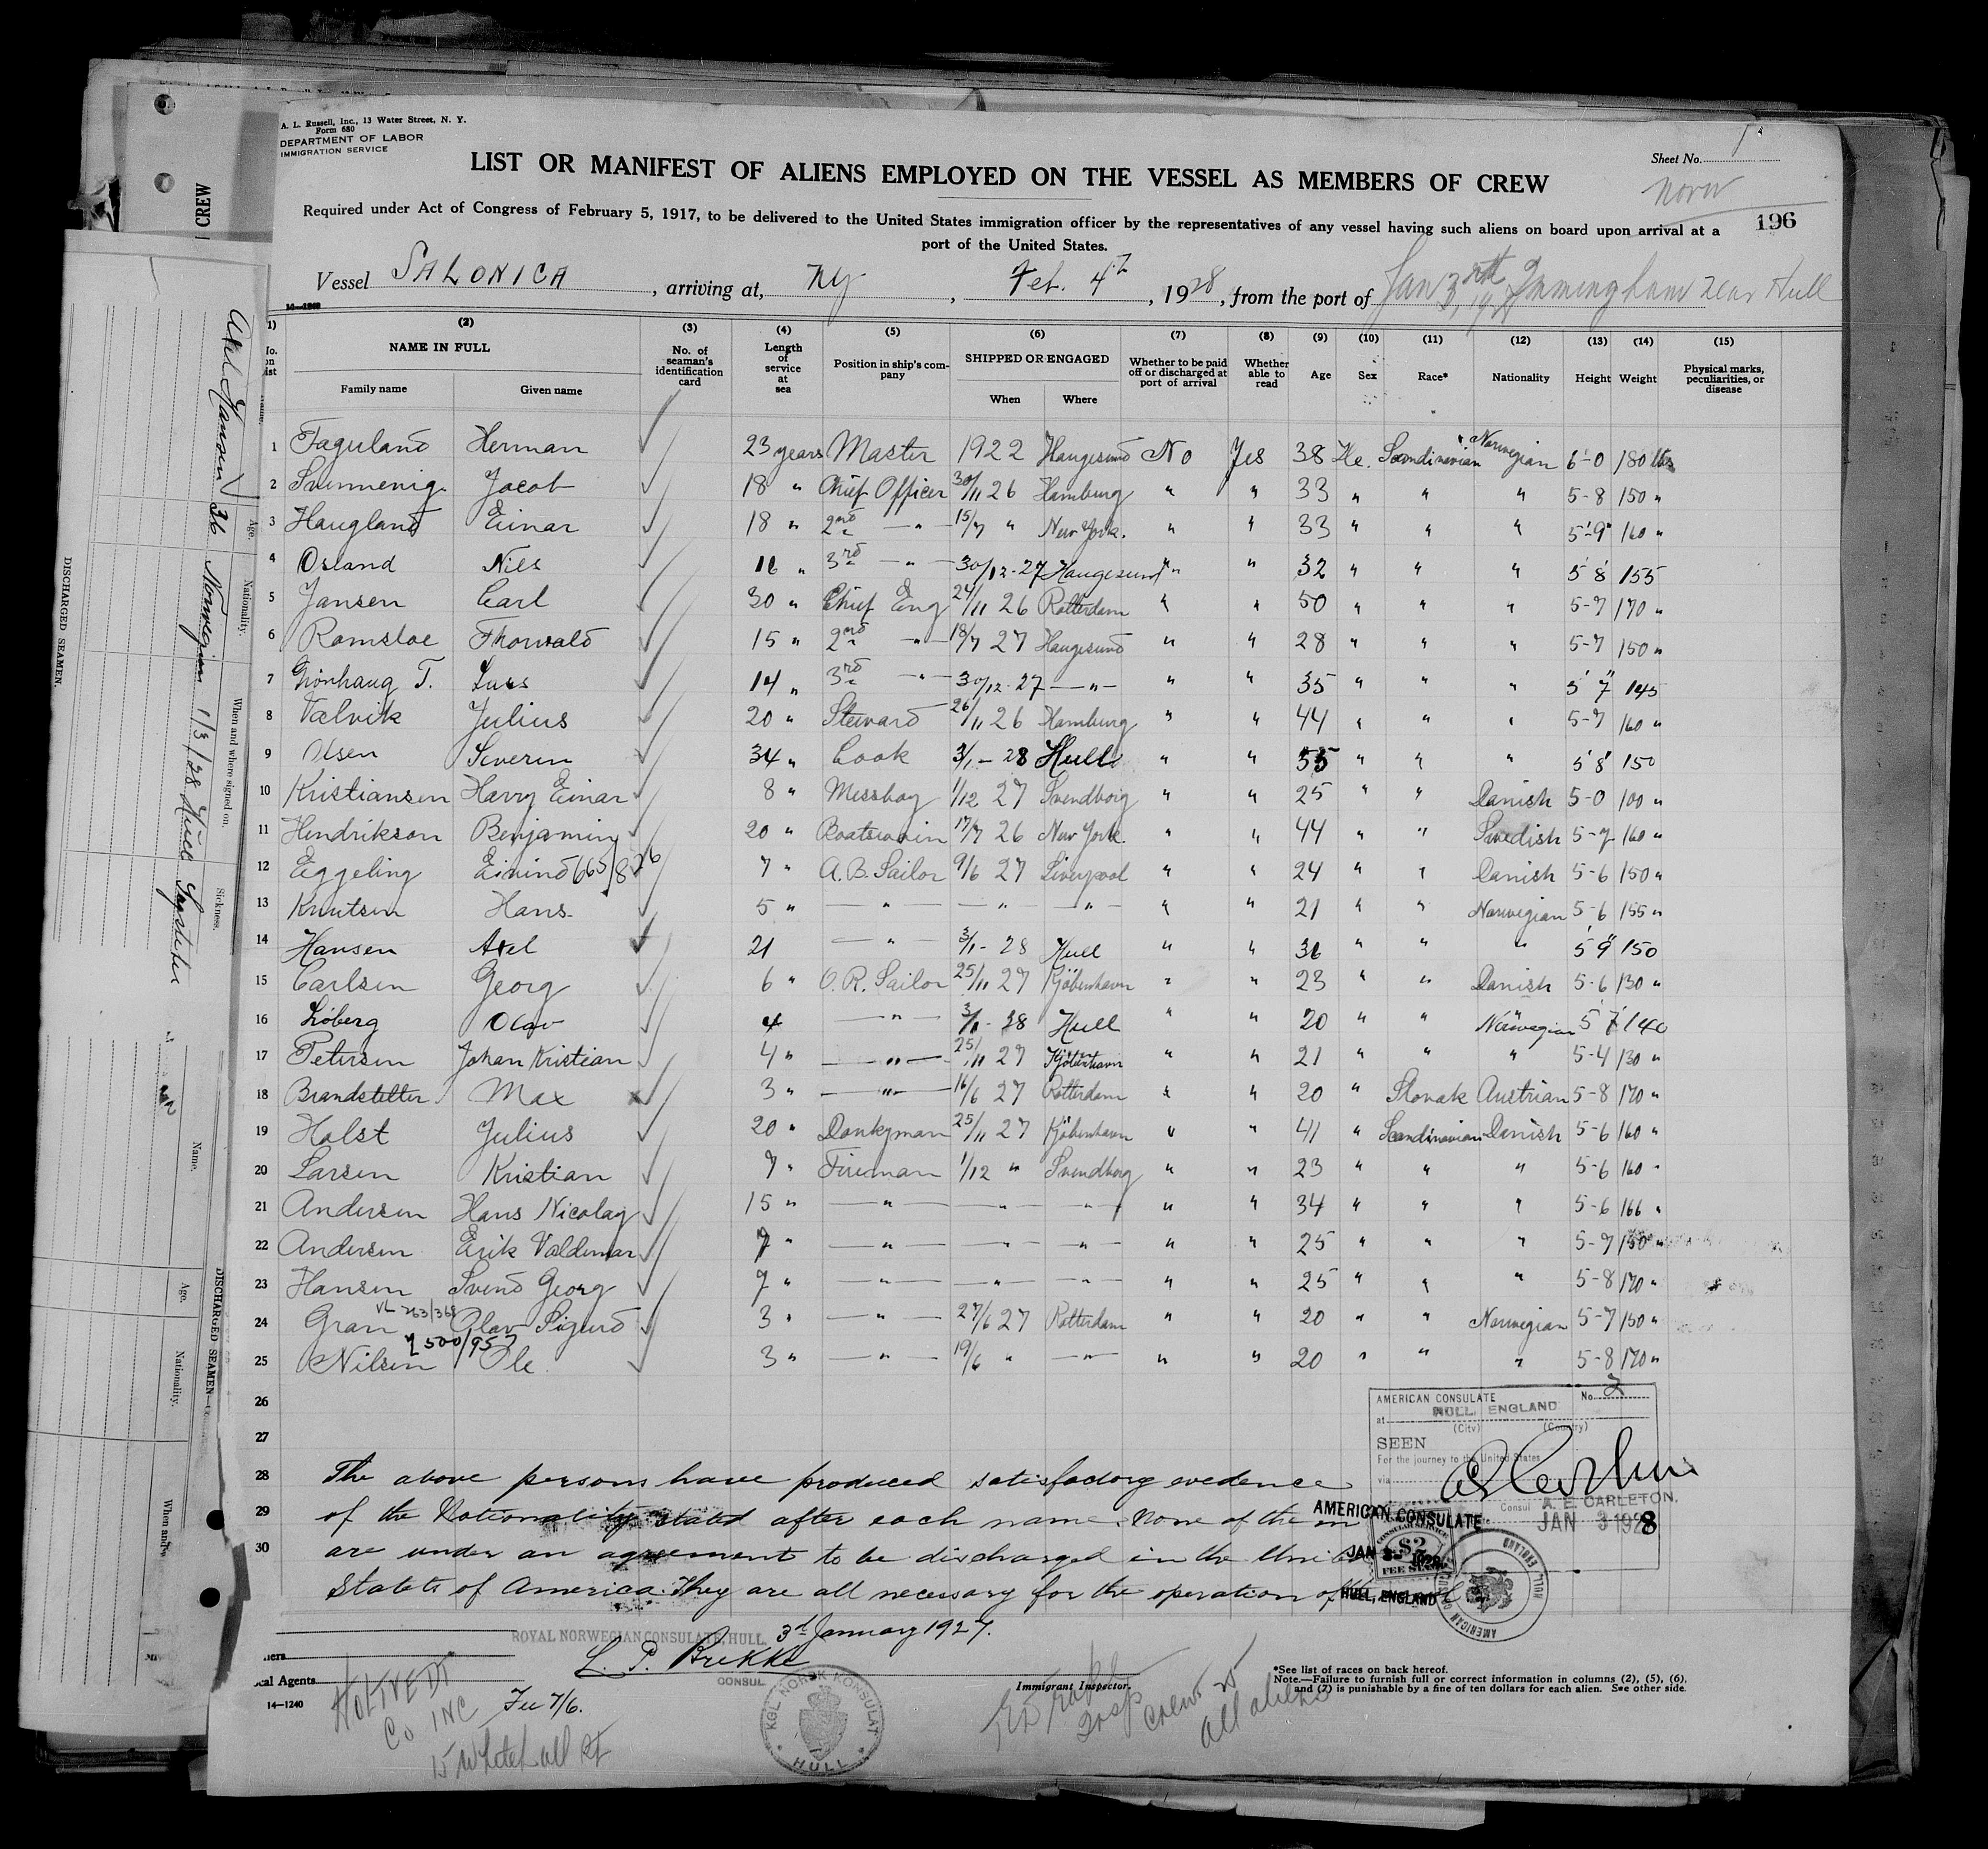 A. L. Russell, Inc., 13 Water Street, N. Y.
Form 680
DEPARTMENT OF LABOR
IMMIGRATION SERVICE
Sheet No. 1
LIST OR MANIFEST OF ALIENS EMPLOYED ON THE VESSEL AS MEMBERS OF CREW
196
Required under Act of Congress of February 5, 1917, to be delivered to the United States immigration officer by the representatives of any vessel having such aliens on board upon arrival at a
port of the United States.
Vessel SALONICA, arriving at, NY, Feb. 4th, 1928, from the port of Jan 3rd Immingham near Hull
(2) (3) (4) (5) (6) (7) (8) (9) (10) (11) (12) (13) (14) (15)
NAME IN FULL Family name Given name No. of seaman's identification card Length of service at sea Position in ship's company SHIPPED OR ENGAGED When Where Whether to be paid off or discharged at port of arrival Whether able to read Age Sex Race* Nationality Height Weight Physical marks, peculiarities, or disease
1 Fagerland Herman 23 years Master 1922 Haugesund No Yes 38 He. Scandinavian Norwegian 6-0 180 lbs
2 Jacob 18 " Chief Officer 30/11 26 Hamburg " " 33 " " " 5-8 150 "
3 Haugland Einar 18 " 2nd — " — 15/7 " New York. " " 33 " " " 5-9 160 "
4 Osland Nils 16 " 3rd — " — 30/12-27 Haugesund " " 32 " " " 5 8 155
5 Jansen Carl 30 " Chief Eng 24/11 26 Rotterdam " " 50 " " " 5-7 170 "
6 Romsloe Thorvald 15 " 2nd — " — 18/7 27 Haugesund " " 28 " " " 5-7 150 "
7 Grönhaug T. Lars 14 " 3rd — " — 30/12-27 — " — " " 35 " " " 5 7 145
8 Valvik Julius 20 " Steward 26/11 26 Hamburg " " 44 " " " 5-7 160 "
9 Olsen Severin 34 " Cook 3/1-28 Hull " " 55 " " " 5 8 150
10 Kristiansen Harry Einar 8 " Messboy 1/12 27 Svendborg " " 25 " " Danish 5-0 100 "
11 Hendrikson Benjamin 20 " Boatswain 17/7 26 New York. " " 44 " " Swedish 5-7 160 "
12 Eggeling Eivind 665/826 7 " A.B. Sailor 9/6 27 Liverpool " " 24 " " Danish 5-6 150 "
13 Knutsen Hans 5 " — " — — " — — " — " " 21 " " Norwegian 5-6 155 "
14 Hansen Axel 21 — " — 3/1-28 Hull " " 36 " " " 5 9 150
15 Carlsen Georg 6 " O.R. Sailor 25/11 27 Kjöbenhavn " " 23 " " Danish 5-6 130 "
16 Olav 4 — " — 3/1-28 Hull " " 20 " " Norwegian 5 7 140
17 Petersen Johan Kristian 4 " — " — 25/11 27 Kjöbenhavn " " 21 " " " 5-4 130 "
18 Brandstetter Max 3 " — " — 16/6 27 Rotterdam " " 20 " Slovak Austrian 5-8 170 "
19 Holst Julius 20 " Donkyman 25/11 27 Kjöbenhavn " " 41 " Scandinavian Danish 5-6 160 "
20 Larsen Kristian 7 " Fireman 1/12 " Svendborg " " 23 " " " 5-6 160 "
21 Andersen Hans Nicolay 15 " — " — — " — — " — " " 34 " " " 5-6 166 "
22 Andersen Erik Valdemar 7 " — " — — " — — " — " " 25 " " " 5-7 150 "
23 Hansen Svend Georg 7 " — " — — " — — " — " " 25 " " " 5-8 170 "
24 Gran Olav Sigurd 3 " — " — 27/6 27 Rotterdam " " 20 " " Norwegian 5-7 150 "
500/957
25 Nilsen Ole 3 " — " — 19/6 " — " — " " 20 " " " 5-8 170 "
26
27
28 The above persons have produced satisfactory evedence
29 of the Nationality stated after each name. None of them
30 are under an agreement to be discharged in the United
States of America. They are all necessary for the operation of
AMERICAN CONSULATE No. 2
at HULL, ENGLAND
(City) (Country)
SEEN
For the journey to the United States
via
Consul A. E. CARLETON.
JAN 3 1928
AMERICAN CONSULATE
CONSULAR SERVICE
$2
FEE STAMP
JAN 3- 1928
HULL, ENGLAND
AMERICAN CONSULATE HULL, ENGLAND
3rd January 1927.
ROYAL NORWEGIAN CONSULATE, HULL.
CONSUL
KGL. NORSK KONSULAT
HULL
Fee 7/6.
cal Agents
14—1240
Co INC
15 Whitehall St
Immigrant Inspector.
crew 25
all aliens
*See list of races on back hereof.
Note.—Failure to furnish full or correct information in columns (2), (5), (6),
and (7) is punishable by a fine of ten dollars for each alien. See other side.
CREW
Axel Hansen 36 Norwegian 1/3/28 Hull
Age. Nationality. When and where signed on. Sickness.
DISCHARGED SEAMEN.
Name. Age. Nationality. When and w
DISCHARGED SEAMEN—